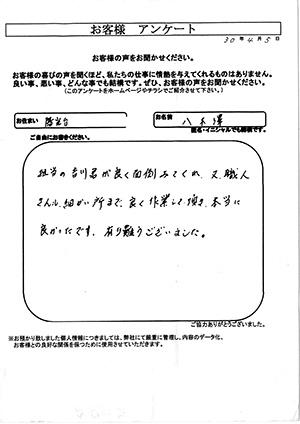 お客様 アンケート
30年4月5日
お客様の声をお聞かせください。
お客様の喜びの声を聞くほど、私たちの仕事に情熱を与えてくれるものはありません。
良い事、悪い事、どんな事でも結構です。ぜひ、お客様の声をお聞かせください。
(このアンケートをホームページやチラシでご紹介させて下さい。)
お住まい
お名前 八木澤
匿名・イニシャルでも結構です。
ご自由にお書きください。
担当の吉川君が良く面倒みてくれ、又、職人
さんも、細かい所まで、良く作業して頂き、本当に
良かったです。有り難うございました。
ご協力ありがとうございました。
※お預かり致しました個人情報につきましては、弊社にて厳重に管理し、内容のデータ化、
お客様との良好な関係を保つために使用させていただきます。